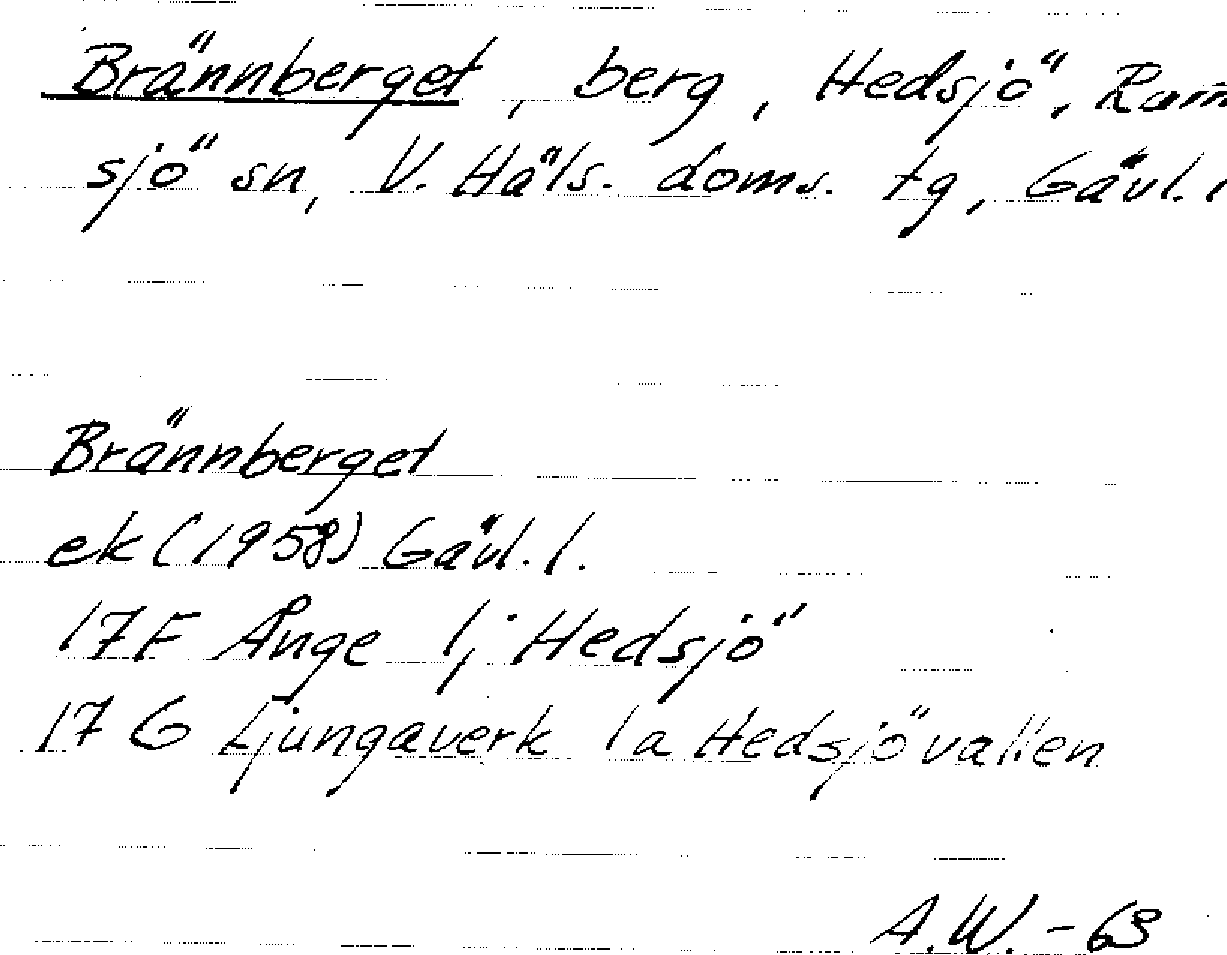 Brännberget, berg, Hedsjö, Ram
sjö sn, V. Häls. doms. tg, Gävl. l
Brännberget
ek (1958) Gävl. l.
17F Ånge 1j Hedsjö
17 G Ljungaverk 1a Hedsjövallen
A.W. - 63